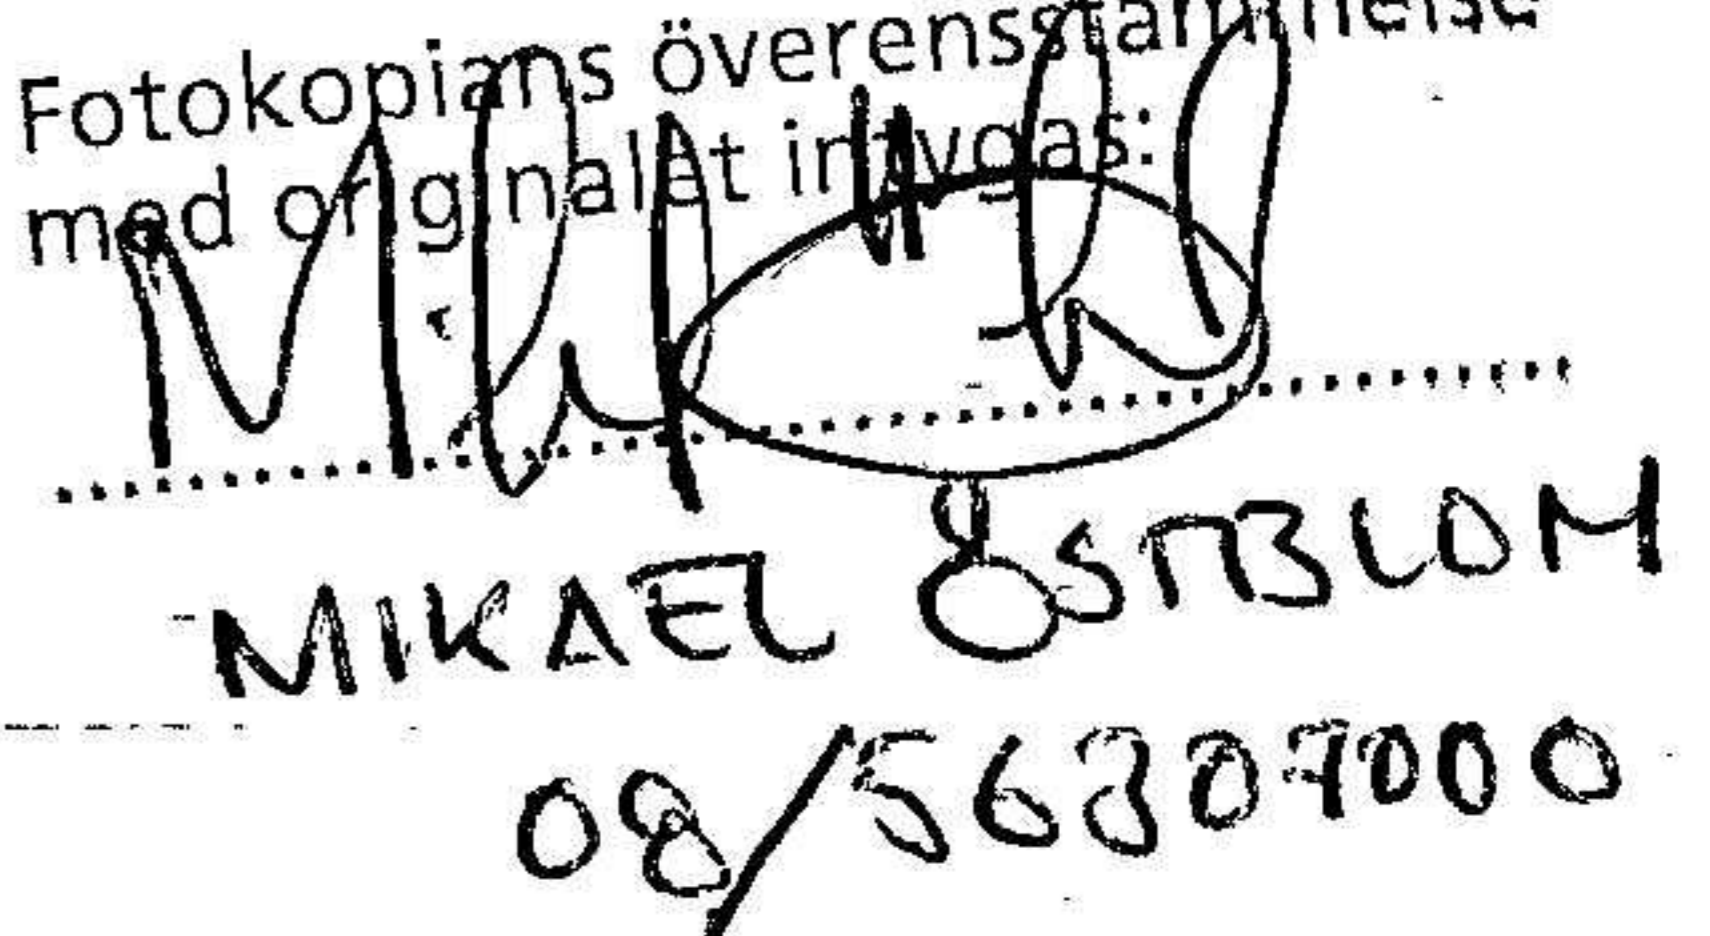 Fotokopians överensstämmelse
med originalet intygas:
MIKAEL ÖSTBLOM
08/56307000